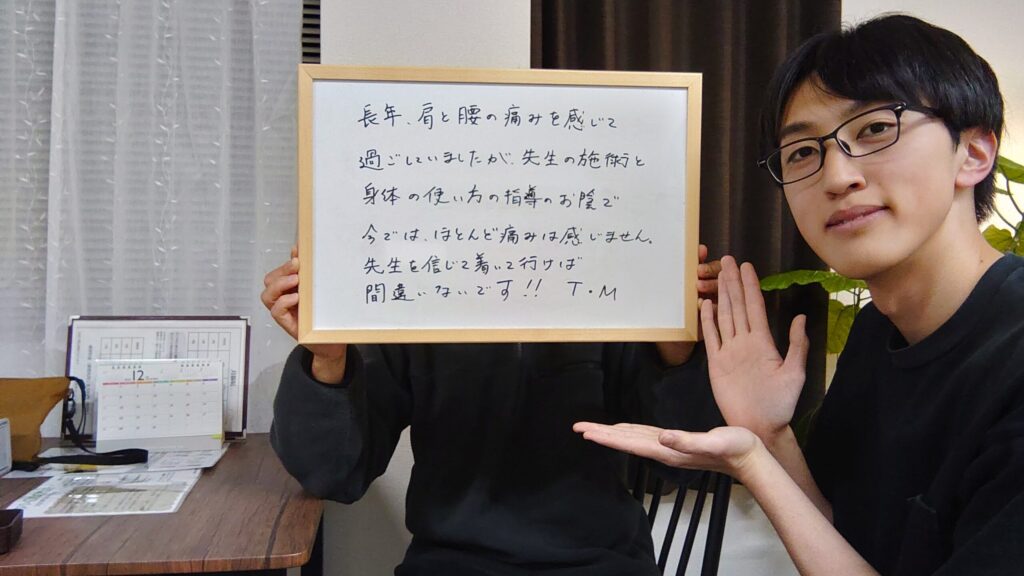 長年、肩と腰の痛みを感じて
過ごしていましたが、先生の施術と
身体の使い方の指導のお陰で
今では、ほとんど痛みは感じません。
先生を信じて着いて行けば
間違いないです!! T・M
12